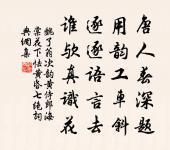 唐人春深题
用韵工车斜
逐逐语言去
谁欤真识花
魏了翁次韵黄侍郎海
棠花下怯黄昏七绝词
典网集